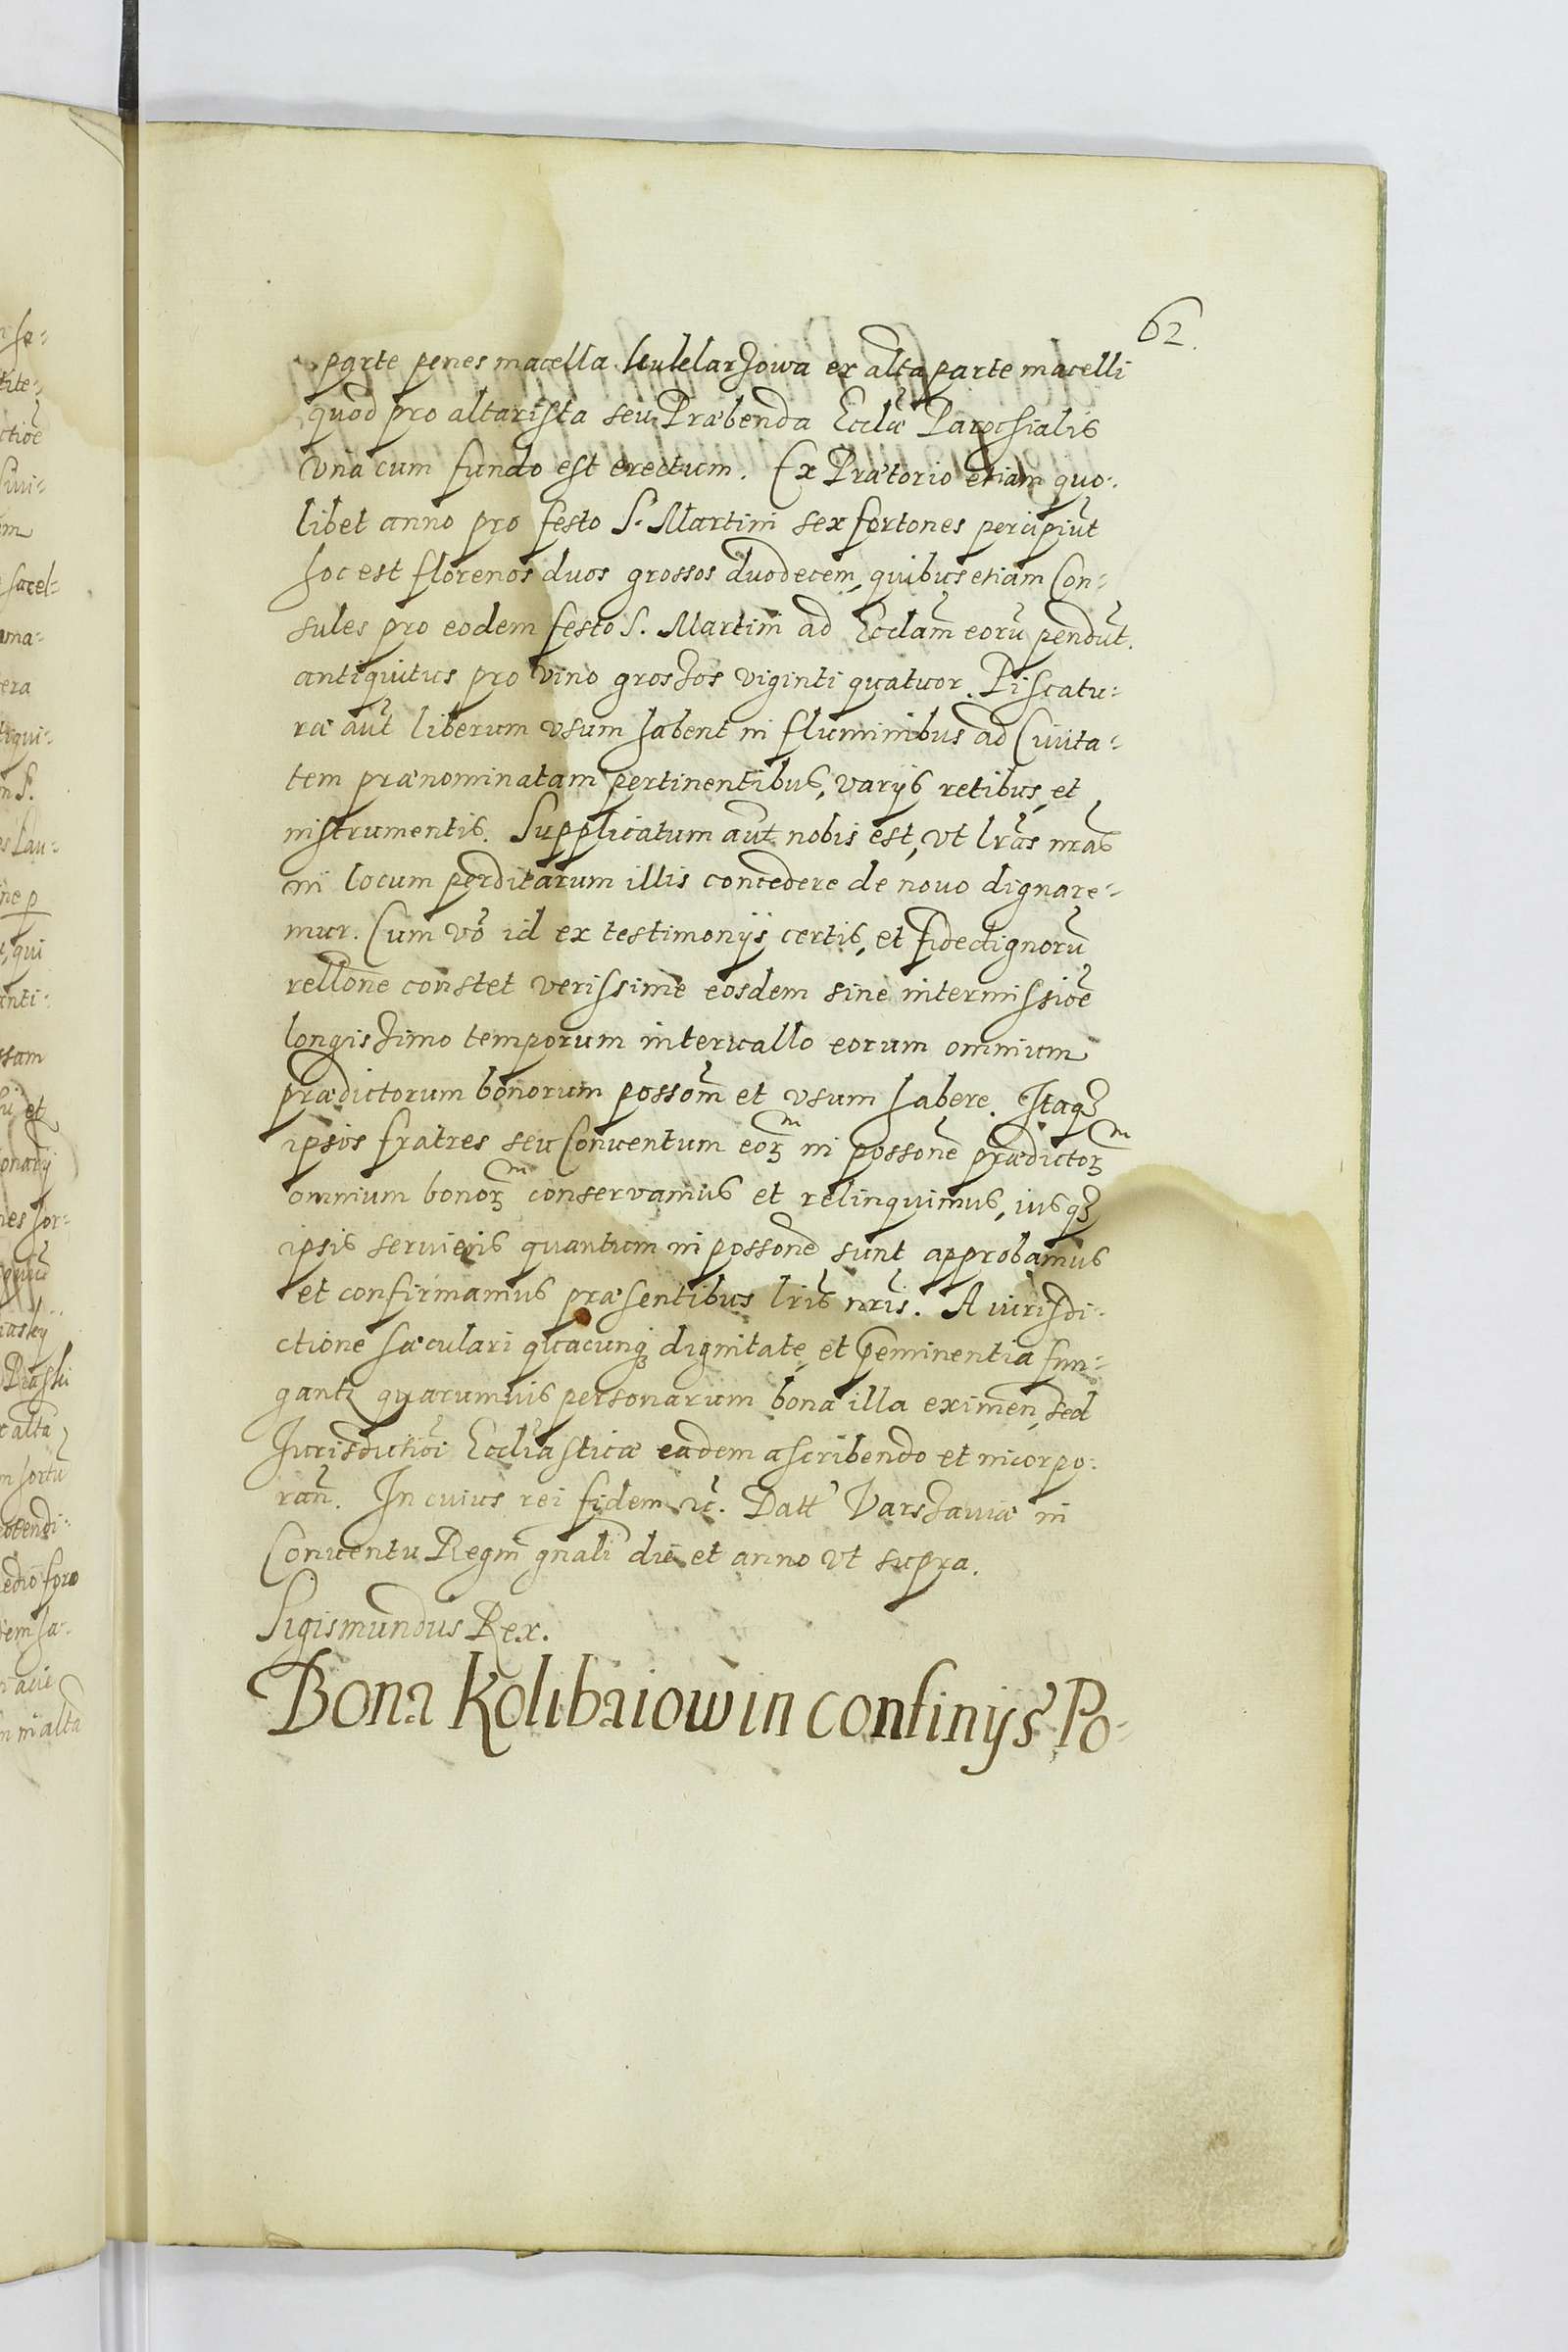 62.
parte penes macella kuklarzowa ex alta parte macelli
quod pro altarista seu Præbenda Ecclæ Parochialis
vna cum fundo est erectum. Ex Prætorio etiam quo:
libet anno pro festo S. Martini sex fertones percipiūt
hoc est florenos duos grossos duodecem, quibus etiam Con:
sules pro eodem festo S. Martini ad Ecclam̄ eorū pendūt.
antiquitus pro vino grossos viginti quatuor. Piscatu:
ræ aūt liberum vsum habent in fluminibus ad Ciuita:
tem prænominatam pertinentibus, varijs retibus, et
instrumentis. Supplicatum aūt nobis est, vt lrās nrās
in locum perditarum illis concedere de nouo dignare:
mur. Cum vō id ex testimonijs certis, et fidedignorū
rellone constet verissime eosdem sine intermissiōe
longissimo temporum interuallo eorum omnium
prædictorum bonorum possom̄ et vsum habere. Itaqȝ
ipsos fratres seu Conuentum eoꝝ in possonē prædictoꝝ
omnium bonoꝝ conservamus et relinquimus, iusqȝ
ipsis seruien̄s quantum in possone sunt approbamus
et confirmamus præsentibus lrīs nrīs. A iurisdi:
ctione sæculari quacunqȝ dignitate, et p̄eminentia fun:
gantȝ quarumuis personarum bona illa eximen̄, sed
Iurisdictiōi Ecclīasticæ eadem ascribendo et incorpo:
ran̄. In cuius rei fidem ꝛc̄. Datt Varsauiæ in
Conuentu Regni gnali die et anno vt supra.
Sigismundus Rex.
Bona Kolibaiow in confinijs Po: